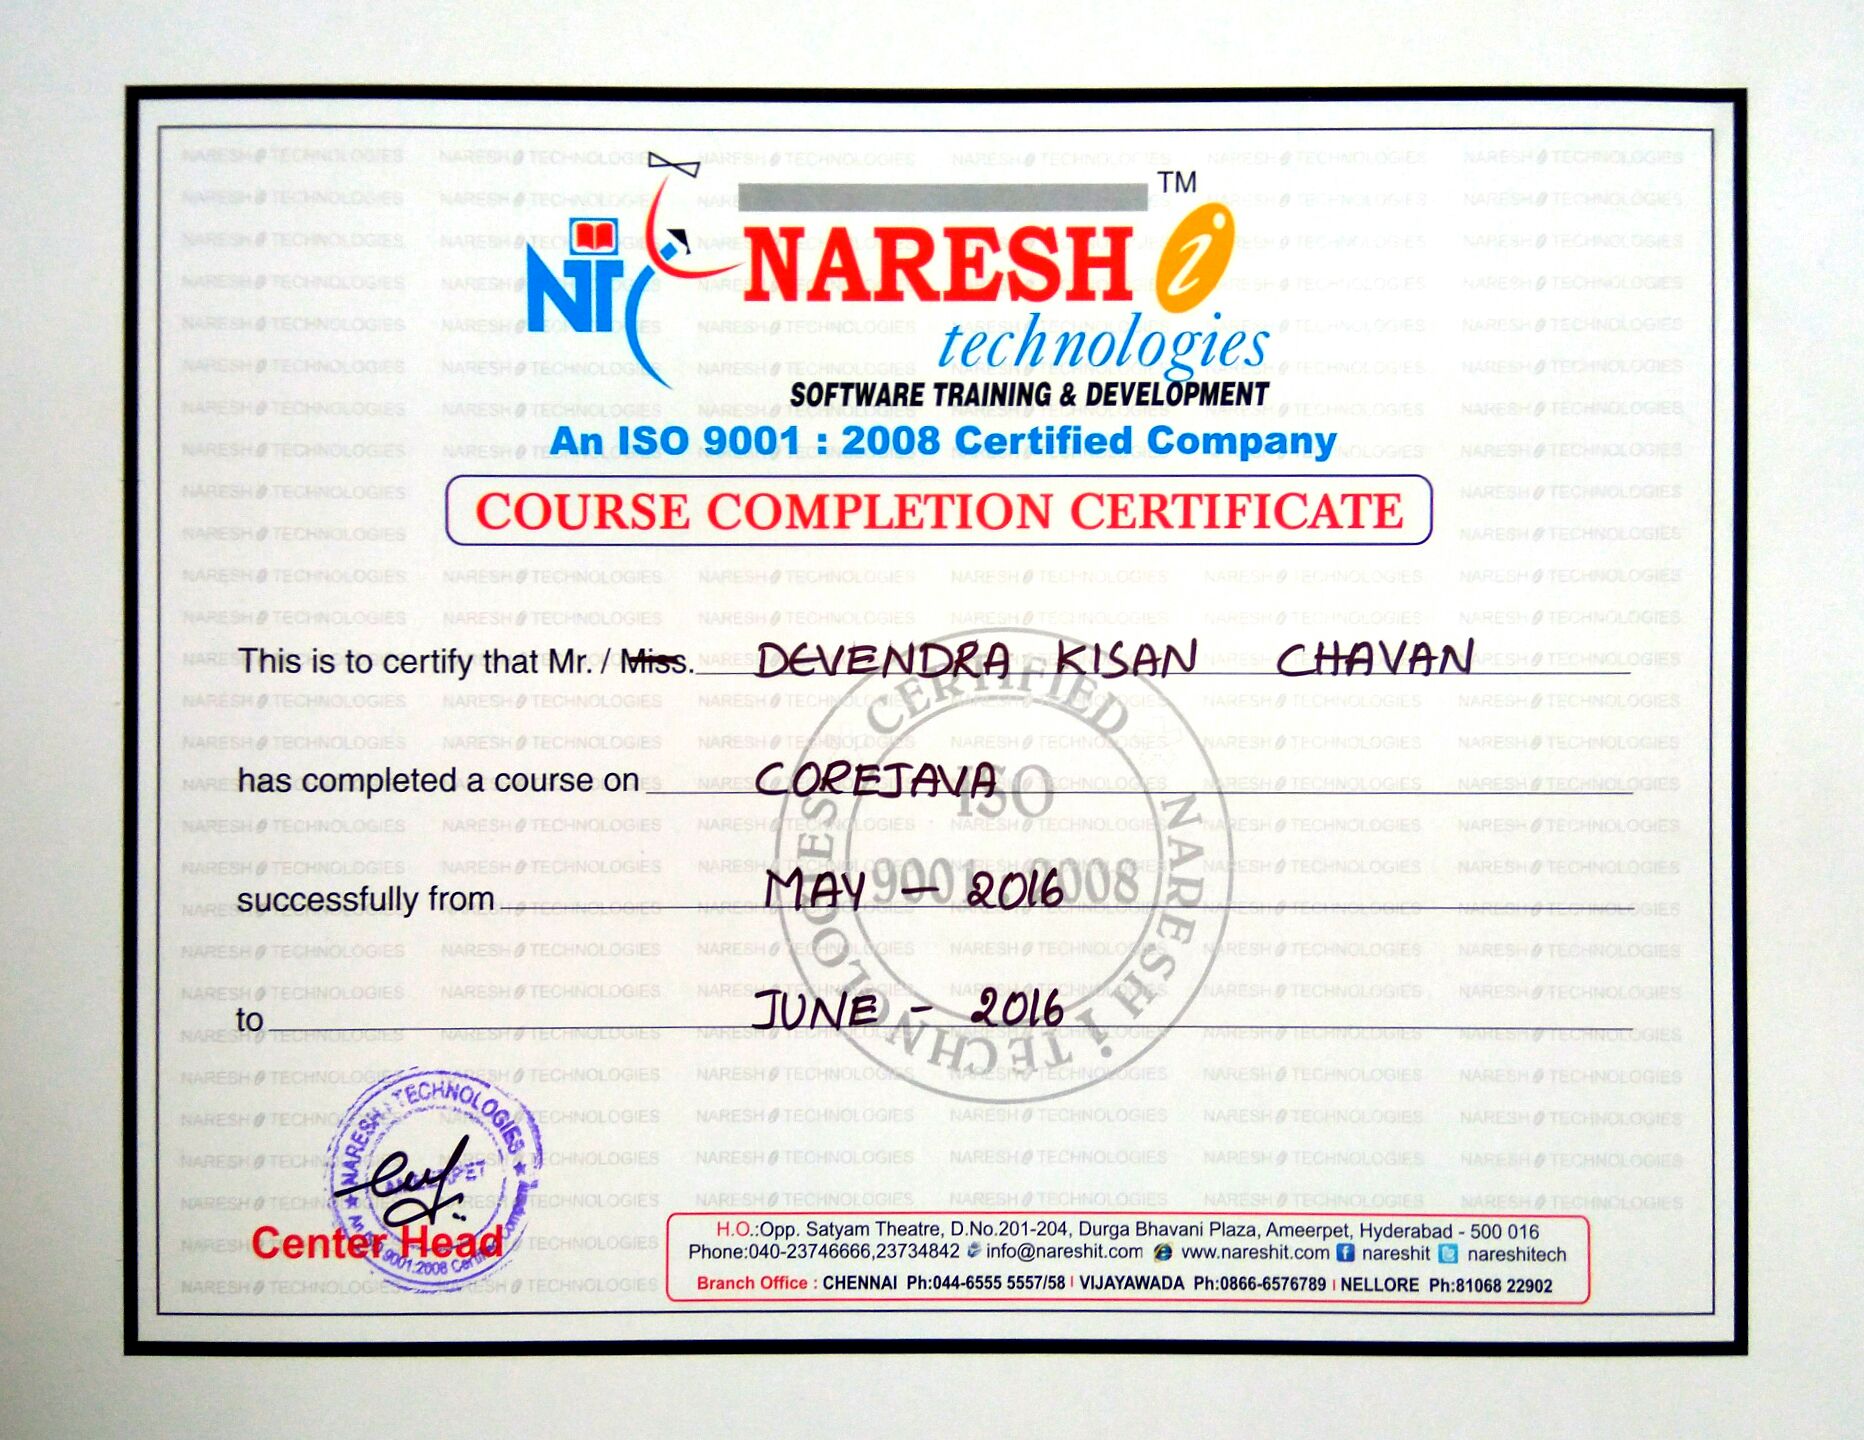 TM
NTC NARESH i
technologies
SOFTWARE TRAINING & DEVELOPMENT
An ISO 9001 : 2008 Certified Company
COURSE COMPLETION CERTIFICATE
This is to certify that Mr. / Miss. DEVENDRA KISAN CHAVAN
has completed a course on COREJAVA
successfully from MAY - 2016
to JUNE - 2016
CERTIFIED NARESH i TECHNOLOGIES
ISO
9001:2008
NARESH i TECHNOLOGIES
AMEERPET
An ISO 9001:2008 Certified Company
Center Head
H.O.:Opp. Satyam Theatre, D.No.201-204, Durga Bhavani Plaza, Ameerpet, Hyderabad - 500 016
Phone:040-23746666,23734842 info@nareshit.com www.nareshit.com nareshit nareshitech
Branch Office : CHENNAI Ph:044-6555 5557/58 | VIJAYAWADA Ph:0866-6576789 | NELLORE Ph:81068 22902